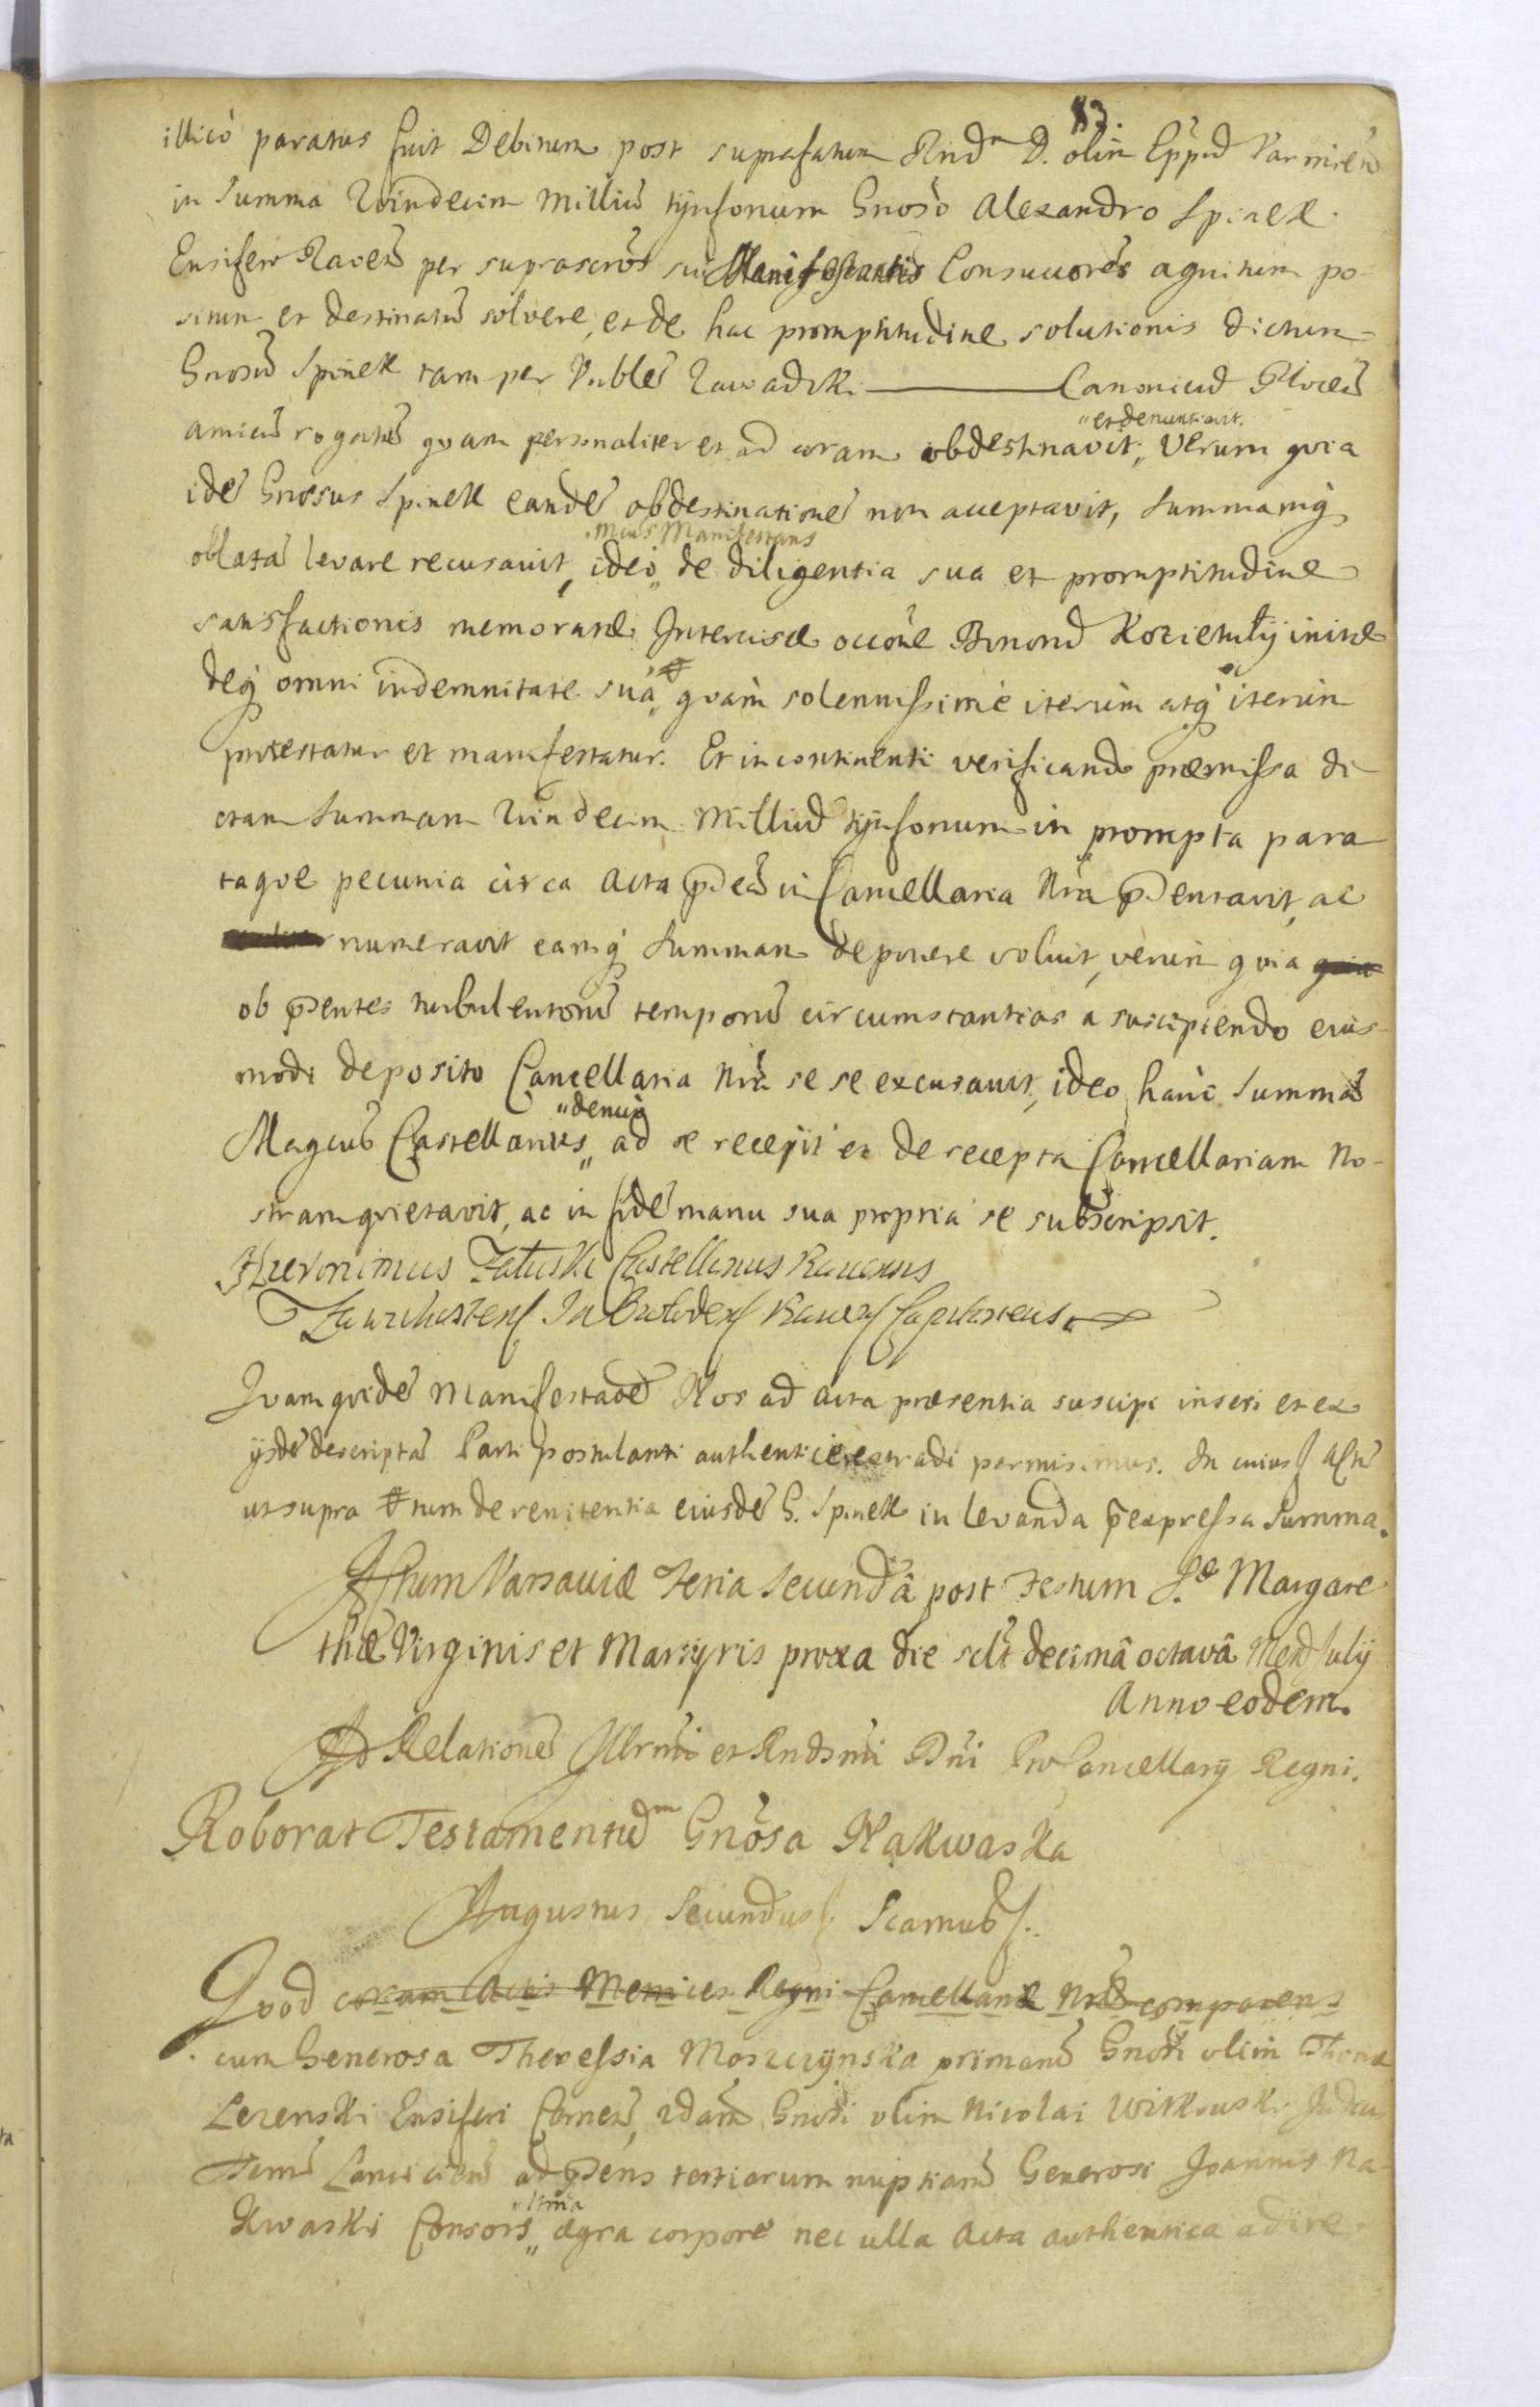 83.
illicò paratus fuit Debitum post suprafatum Rnd̃m D. olim Epp̃ũ Varmieñ
in Summa Quindecim Milliũ tijnfonum Gnoso Alexandro Spinek
Ensifero Raveñ per suprascr̃os sui Manifestantis Consuccores agnitum po-
situm et destinatũ solvere, et de hac promptitudine solutionis dictum
Gnosũ Spinek tam per Vnblẽ Zawadzki ——— CanonicũPloceñ
amicũ rogatũ quam personaliter et ad coram obdestinavit, "et denuntiavit. Verum quia
idẽ Gnosus Spinek eandẽ obdestinationẽ non acceptavit, Summamq̃
oblatã levare recusavit, ideò "Mcus Manifestans de diligentia sua et promptitudine
satisfactionis memoratæ Intercisæ occõne Bonorũ Kozietuły initæ
deq̃ omni indemnitate suà # quàm solennissimè iterùm atq̃ iterùm
protestatur et manifestatur. Et incontinenti verificando præmissa di-
ctam Summam Quindecim Milliũ tijnfonum in prompta para
taqve pecunia circa Acta p̃deñ in Cancellaria Nrã p̃dentavit, ac
numeravit eamq̃ Summam deponere voluit, verùm qvia qvia
ob p̃dentes turbulentorũ temporũ circumstantias a suscipiendo eius-
modi deposito Cancellaria Nrã se se excusavit, ideo hanc Summã
Magcus Castellanus "denuò ad se recepit et de recepta Cancellariam No-
stram qvietavit, ac in fidẽ manu sua propria se subscripsit.
Hieronimus Załuski Castellanus Ravensis
Inowłodeñ Raveñ Capitaneus
Qvam qvidẽ Manifestaõẽ Nos ad Acta præsentia suscipi inseri et ex
ijsdẽ descriptã Parti postulanti authenticè extradi permisimus. In cuius Actũ
ut supra # tum de renitentia eiusdẽ G. Spinek in levanda p̃expressa Summa.
Actum Varsaviæ Feria Secundâ post Festum S.æ Margare
thæ Virginis et Martyris proxa die sclt̃ decimâ octavâ Mens Julij
Anno eodem.
Ad Relationẽ Illrmi et Rndsmi Dñi ProCancellarij Regni.
Roborat Testamentũm Gnosa Nakwaska
Augustus Secundus
Qvod coram Actis Metrices Regni Cancellariæ Nrãe comparens
cum Generosa Theressia Moszczijnska primarũ Gnosi olim Thomæ
Lezenski Ensiferi Comeñ, 2darũ Gnosi olim Nicolai Witkowski Judicis
Terrũ Lanciciens ad p̃dens tertiarum nuptiarũ Generosi Joannis Na-
kwaski Consors, "ltima ægra corpore nec ulla Acta authentica adire